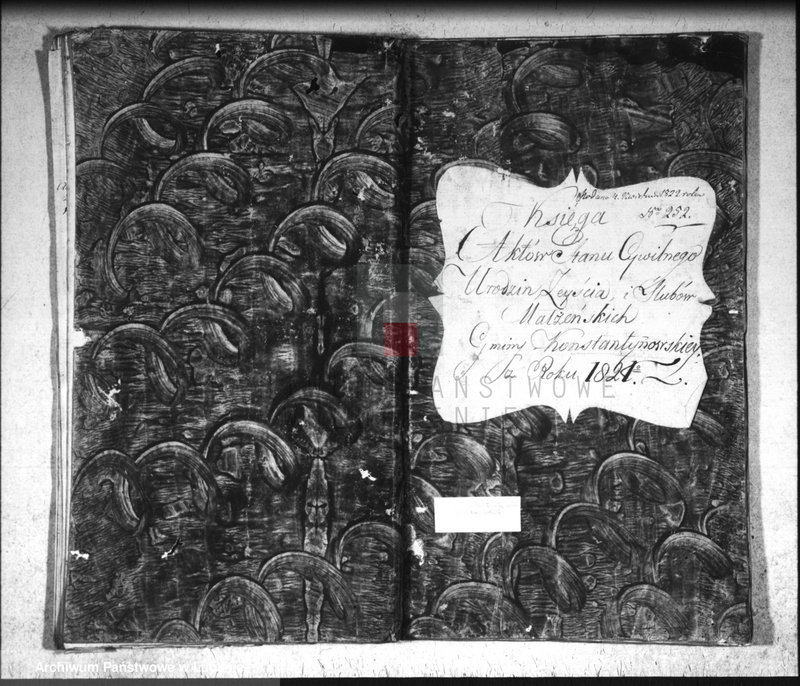 1822 roku
Nro 252.
Księga
Aktów Stanu Cywilnego
Urodzin Zeyścia, i Slubów
Małzenskich
Gminy Konstantynowskiey.
Z Roku 1821.
PAŃSTWOWE
Archiwum Państwowe w